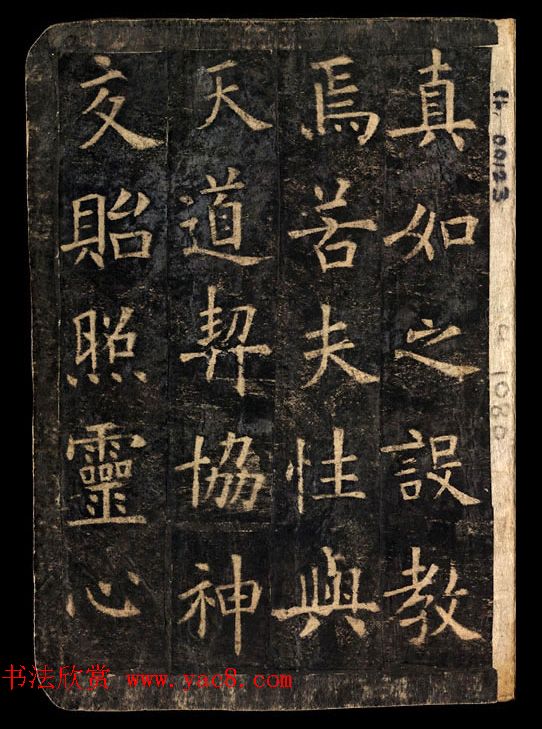 真如之設教
焉若夫性與
天道契協神
交貽照靈心
Ch. 00123
1080
书法欣赏 www.yac8.com